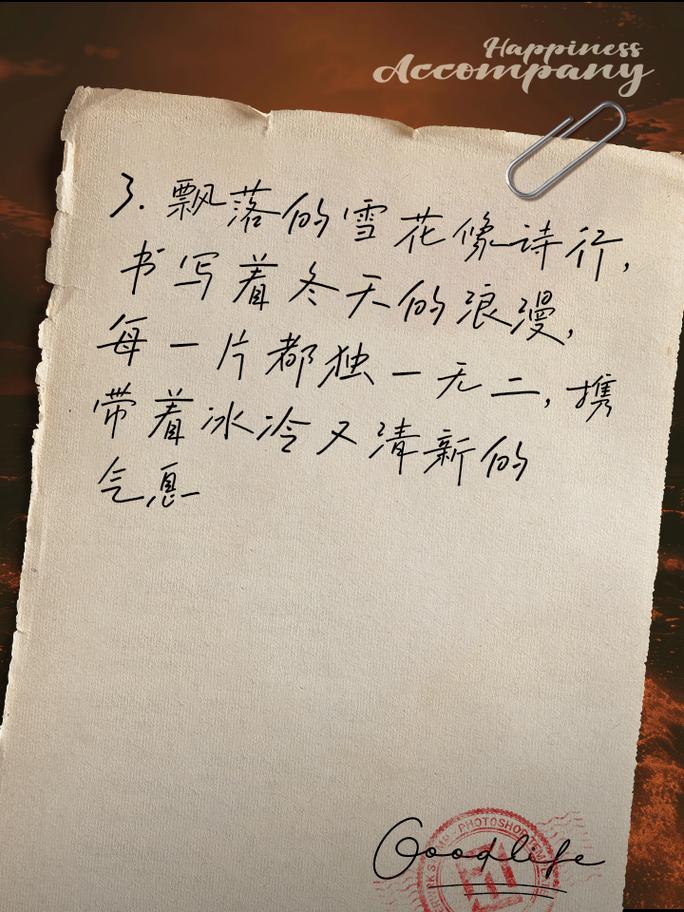 Happiness
Accompany
3. 飘落的雪花像诗行,
书写着冬天的浪漫,
每一片都独一无二, 携
带着冰冷又清新的
气息
Goodlife
PHOTOSHOP